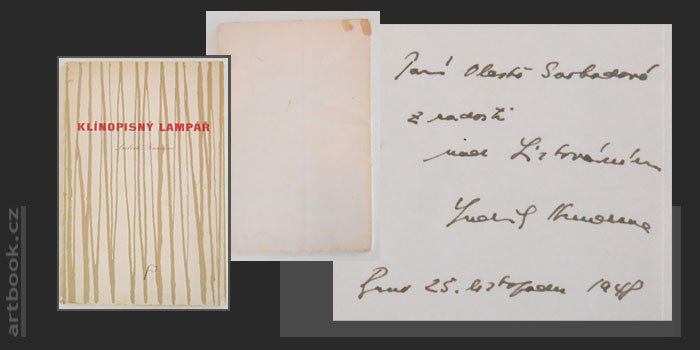 KLÍNOPISNÝ LAMPÁŘ
Ludvík Kundera
Paní Vlastě Svobodové
z radosti
nad Listováním
Ludvík Kundera
Brno 25. listopadu 1948
artbook.cz